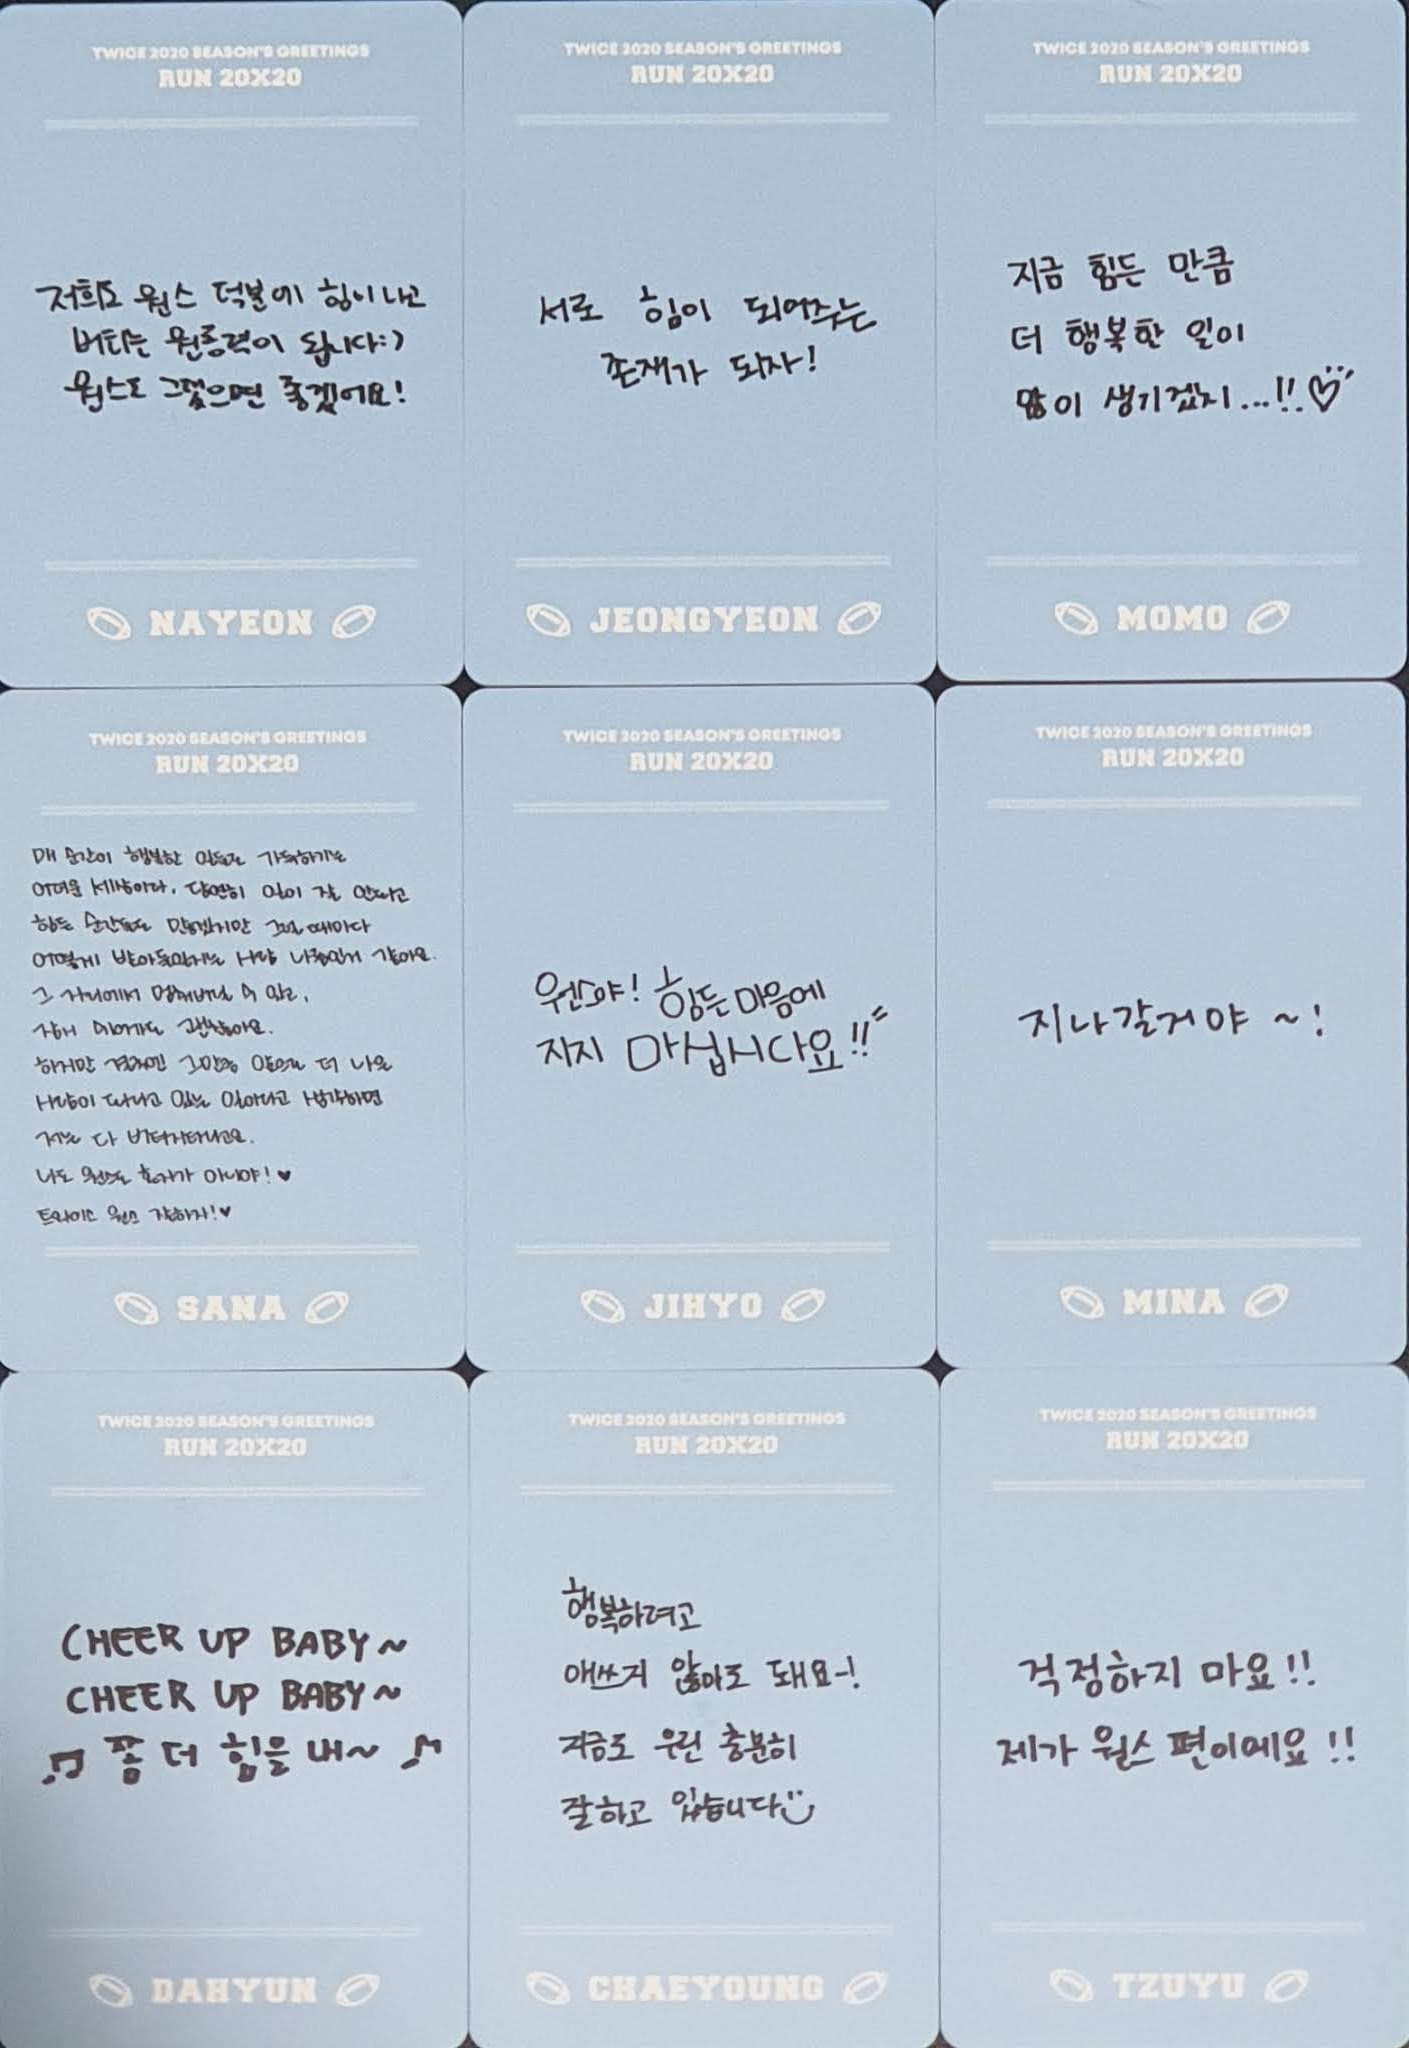 TWICE 2020 SEASON'S GREETINGS
RUN 20X20
저희도 원스 덕분에 힘이 나고
버티는 원동력이 됩니다:)
원스도 그랬으면 좋겠어요!
NAYEON
TWICE 2020 SEASON'S GREETINGS
RUN 20X20
서로 힘이 되어주는
존재가 되자!
JEONGYEON
TWICE 2020 SEASON'S GREETINGS
RUN 20X20
지금 힘든 만큼
더 행복한 일이
많이 생기겠지...!!♡
MOMO
TWICE 2020 SEASON'S GREETINGS
RUN 20X20
매 순간이 행복한 일들로 가득하기는
어려운 세상이다. 당연히 일이 잘 안되고
힘든 순간들도 많겠지만 그럴 때마다
어떻게 받아들인지는 사람 나름인거 같아요.
그 자리에서 멈춰버릴 수 있고,
잠시 쉬어가도 괜찮아요.
하지만 견뎌면 그만큼 앞으로 더 나은
사람이 되려고 있는 일이라고 생각하면
저는 다 버텨지더라고요.
나도 원스도 혼자가 아니야!♥
트와이스 원스 잘하자!♥
SANA
TWICE 2020 SEASON'S GREETINGS
RUN 20X20
원스야! 힘든 마음에
지지 마십시다요!!
JIHYO
TWICE 2020 SEASON'S GREETINGS
RUN 20X20
지나갈거야 ~!
MINA
TWICE 2020 SEASON'S GREETINGS
RUN 20X20
CHEER UP BABY~
CHEER UP BABY~
♫ 쫌 더 힘을 내~ ♫
DAHYUN
TWICE 2020 SEASON'S GREETINGS
RUN 20X20
행복하려고
애쓰지 않아도 돼요~!
지금도 우린 충분히
잘하고 있습니다
CHAEYOUNG
TWICE 2020 SEASON'S GREETINGS
RUN 20X20
걱정하지 마요!!
제가 원스 편이에요!!
TZUYU